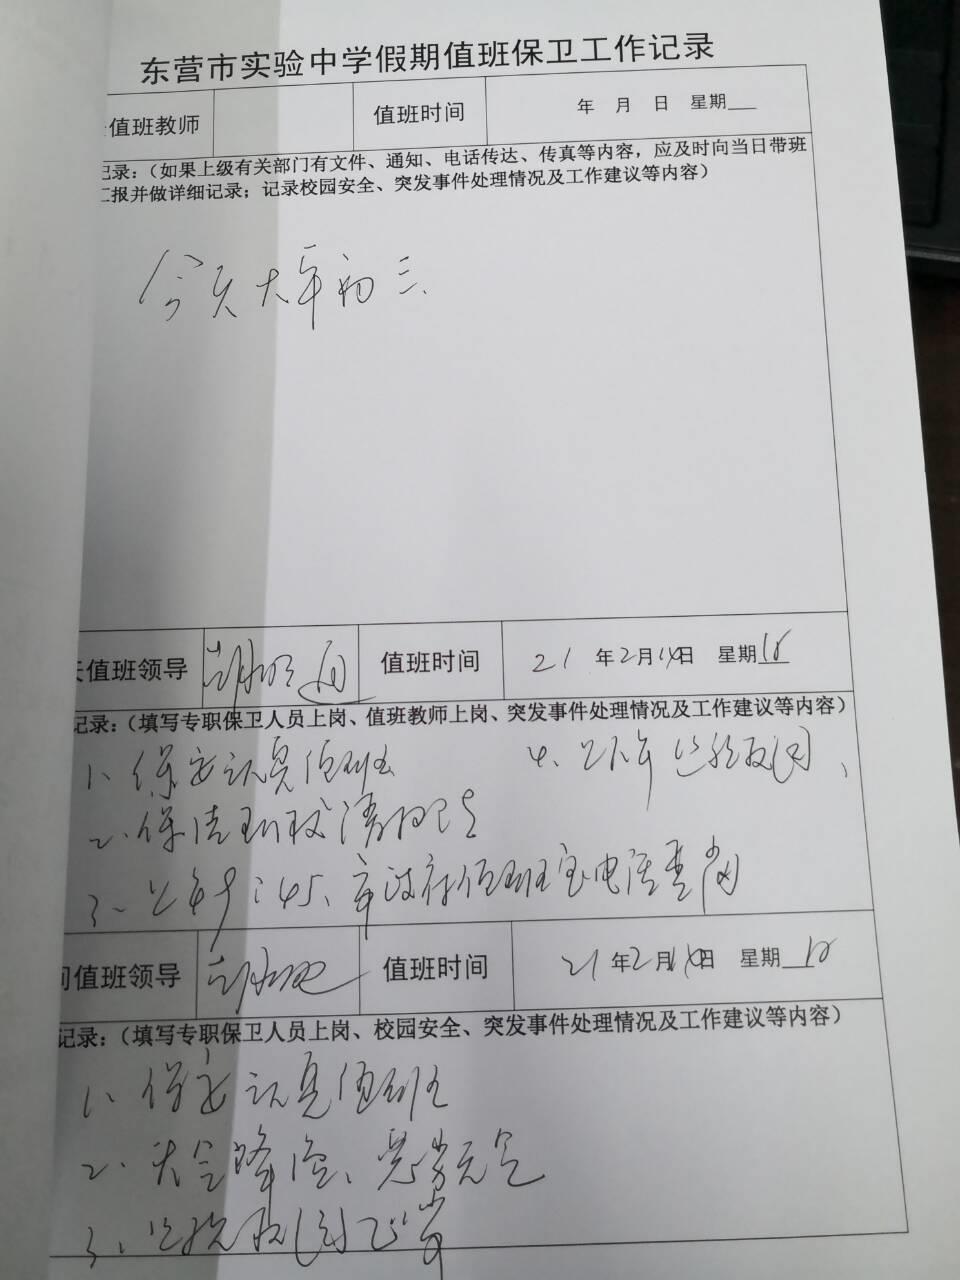 东营市实验中学假期值班保卫工作记录
值班教师 值班时间 年 月 日 星期
记录：（如果上级有关部门有文件、通知、电话传达、传真等内容，应及时向当日带班
汇报并做详细记录；记录校园安全、突发事件处理情况及工作建议等内容）
今天大年初三.
天值班领导 值班时间 21 年 2 月 14 日 星期 日
记录：（填写专职保卫人员上岗、值班教师上岗、突发事件处理情况及工作建议等内容）
1、保安认真值班 4、下午
2、保洁
3、上午9:45、市政府值班室电话查岗
间值班领导 值班时间 21 年 2 月 14 日 星期 日
记录：（填写专职保卫人员上岗、校园安全、突发事件处理情况及工作建议等内容）
1、保安认真值班
2、天气降温、
3、正常